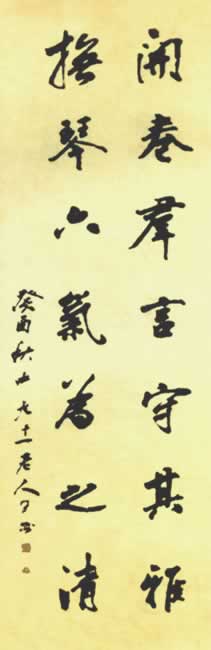 開卷羣言守其雅
撫琴六氣為之清
癸酉秋 九十一老人